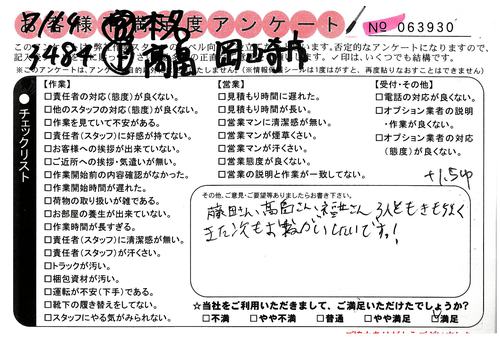 お客様満足度アンケート
No 063930
岡崎市
※このアンケートは、
✓印は、いくつでも結構です。
(※情報保護シールは1度がすと、再度貼りなおすことはできません)
●チェックリスト
【作業】
□責任者の対応(態度)が良くない。
□他のスタッフの対応(態度)が良くない。
□作業を見ていて不安がある。
□責任者(スタッフ)に好感が持てない。
□お客様への挨拶が出来ていない。
□ご近所への挨拶・気遣いが無い。
□作業開始前の内容確認がなかった。
□作業開始時間が遅れた。
□荷物の取り扱いが雑である。
□お部屋の養生が出来ていない。
□作業時間が長すぎる。
□責任者(スタッフ)に清潔感が無い。
□責任者(スタッフ)が汗くさい。
□トラックが汚い。
□梱包資材が汚い。
□運転が不安(下手)である。
□靴下の履き替えをしてない。
□スタッフにやる気がみられない。
【営業】
□見積もり時間に遅れた。
□見積もり時間が長い。
□営業マンに清潔感が無い。
□営業マンが煙草くさい。
□営業マンが汗くさい。
□営業態度が良くない。
□営業の説明と作業が一致してない。
【受付・その他】
□電話の対応が良くない。
□オプション業者の説明
・作業が良くない。
□オプション業者の対応
(態度)が良くない。
+1.5h
その他、ご意見・ご要望等ありましたらお書き下さい。
藤田さん、高畠さん、福世さん 3人ともきもちよく
また次もお願がいしたいです!
☆当社をご利用いただきまして、ご満足いただけたでしょうか?
□不満 □やや不満 □普通 □やや満足 □満足